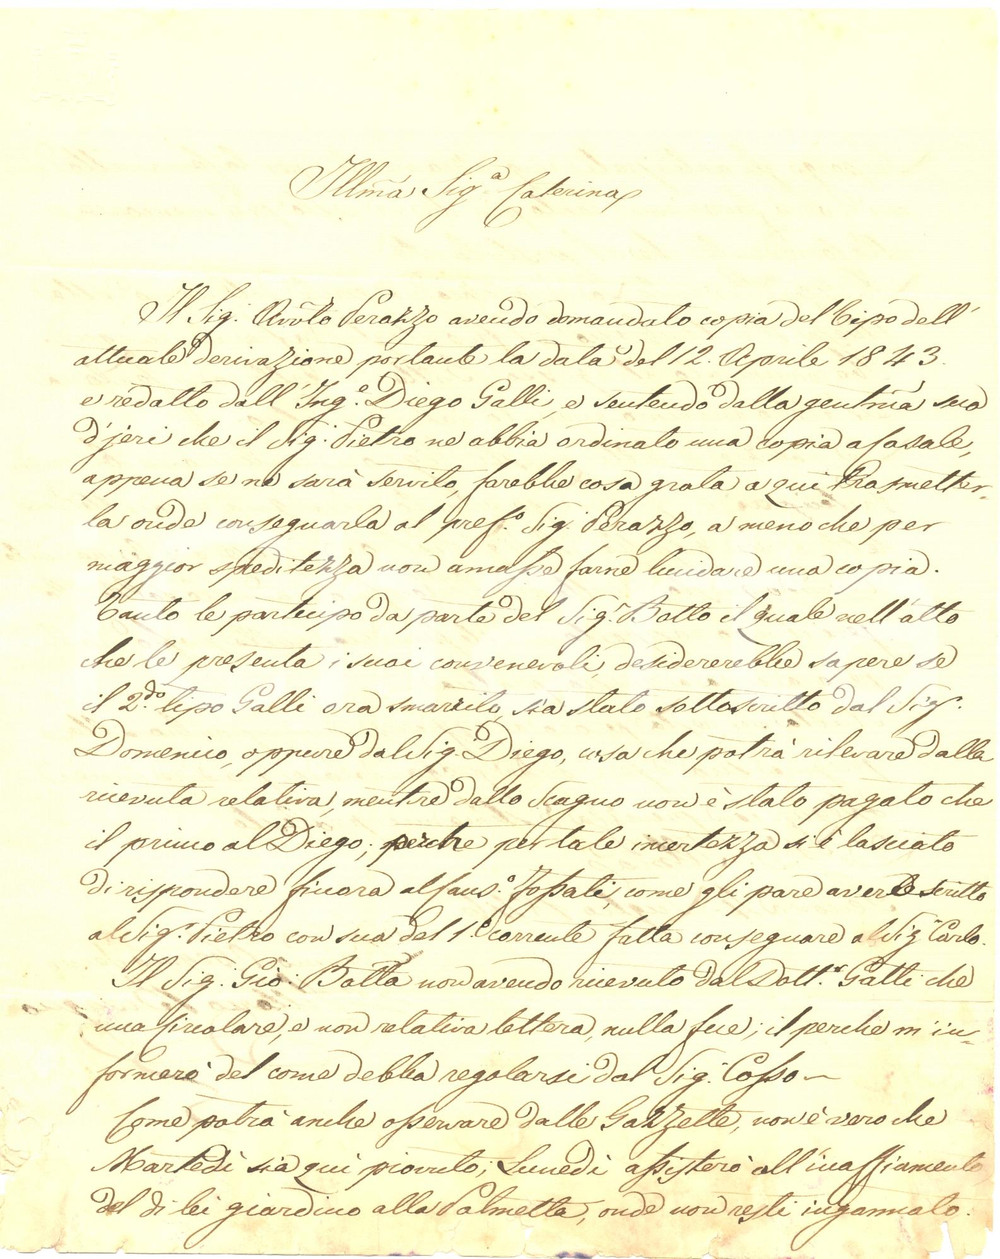 Illma Sig.a Caterina
Il Sig. Avvto Perazzo avendo domandato copia del Tipo dell'
attuale derivazione portante la data del 12. Aprile 1843.
e redatto dall' Ing.e Diego Galli, e sentendo dalla gentma sua
d'jeri che il Sig. Pietro ne abbia ordinato una copia a Casale,
appena se ne sarà servito, farebbe cosa grata a qui trasmetter-
la onde consegnarla al pref.o Sig. Perazzo, a meno che per
maggior speditezza non amasse farne lucidare una copia.
Tanto le partecipo da parte del Sig.r Botto il quale nell'atto
che le presenta i suoi convenevoli, desidererebbe sapere se
il 2.do tipo Galli ora smarrito, sia stato sottoscritto dal Sig.
Domenico, oppure dal Sig. Diego, cosa che potrà rilevare dalla
ricevuta relativa, mentre dallo Scagno non è stato pagato che
il primo al Diego; perchè per tale incertezza si è lasciato
di rispondere finora al Caus.o Fossati, come gli pare averle scritto
al Sig.r Pietro con sua del 1.o corrente fatta consegnare al Sig.r Carlo.
Il Sig. Gio: Batta non avendo ricevuto dal Dott.r Gatti che
una Circolare, e non relativa lettera, nulla fece; il perchè m'in-
formerò del come debba regolarsi dal Sig. Cosso
Come potrà anche osservare dalle Gazzette, non è vero che
Martedì sia qui piovuto; Lunedì assisterò all'inaffiamento
del di lei giardino alla Palmetta, onde non resti ingannato.